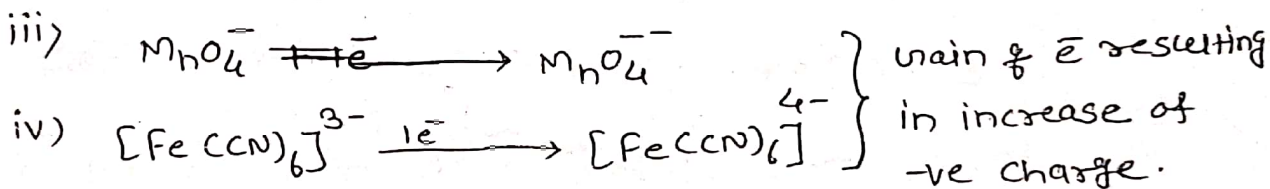 iii) MnO₄⁻ ⟶ MnO₄⁻⁻
iv) [Fe(CN)₆]³⁻ 1e⁻ ⟶ [Fe(CN)₆]⁴⁻
} Gain of e⁻ resulting
in increase of
-ve charge.